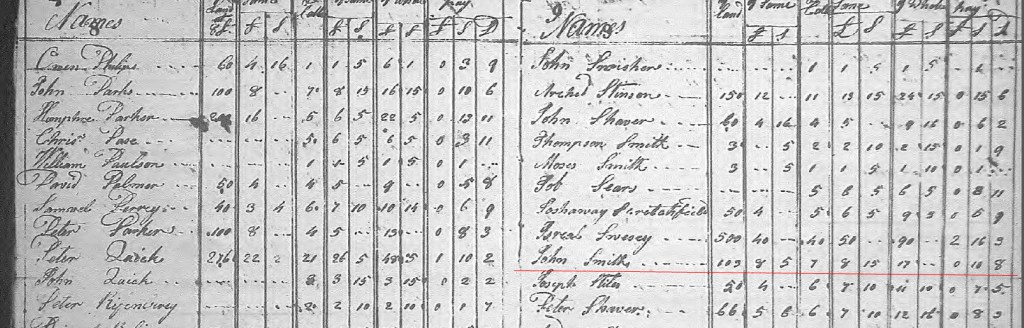 Names Land £ £ S Cattle £ S £ S £ S D
Owen Philips 60 4 16 1 1 5 6 1 0 3 9
John Parks 100 8 7 8 15 16 15 0 10 6
Humphre Parker 16 5 6 5 22 5 0 13 11
Chris Pase 5 6 5 6 5 0 3 11
William Paulson 1 1 5 1 5 0 1
David Palmer 50 4 4 5 9 0 5 8
Samuel Pirrey 40 3 4 6 7 10 10 14 0 6 9
Peter Parker 100 8 4 5 13 0 8 3
Peter Quick 276 22 2 21 26 5 48 5 1 10 2
John Quick 3 15 3 15 0 2 2
Peter 2 2 10 2 10 0 1 7
Names Land £ S £ S £ S £ S D
John Swisher 1 1 5 1 5
Arched Stinson 150 12 11 13 15 24 15 0 15 6
John Shaver 60 4 16 4 5 9 16 0 6 2
Thompson Smith 3 5 2 2 10 2 15 0 1 9
Moses Smith 3 5 1 1 5 1 10 0 1
Job Sears 5 6 5 6 5 0 3 11
50 4 5 6 5
Isreal Swesey 500 40 40 50 90 2 16 3
John Smith 103 8 5 7 8 15 17 0 10 8
Joseph Stiles 50 4 6 7 10 11 10 0 7 5
Peter Shaver 66 5 6 6 7 10 12 16 0 8 3